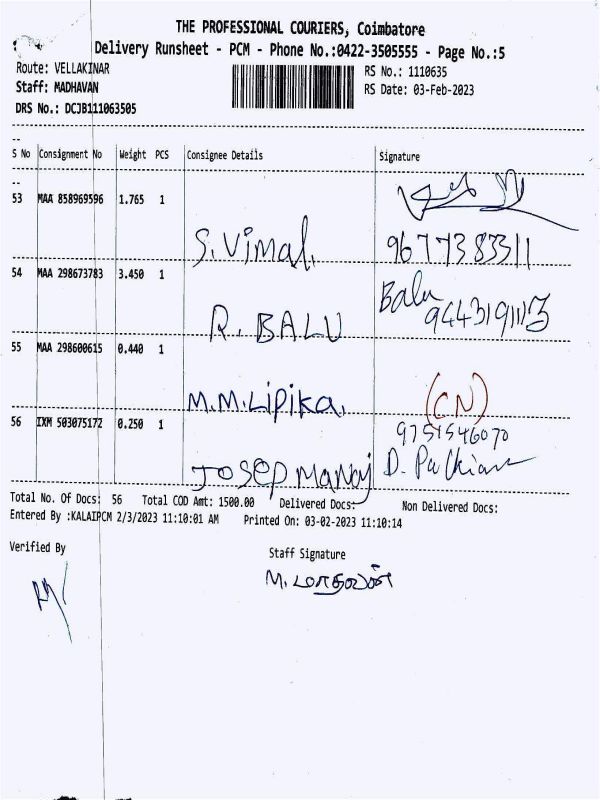 THE PROFESSIONAL COURIERS, Coimbatore
Delivery Runsheet - PCM - Phone No.:0422-3505555 - Page No.:5
Route: VELLAKINAR RS No.: 1110635
Staff: MADHAVAN RS Date: 03-Feb-2023
DRS No.: DCJB111063505
S No Consignment No Weight PCS Consignee Details Signature
53 MAA 858969596 1.765 1
S. Vimal. 9677383311
54 MAA 298673783 3.450 1 Balu
R. BALU 9443191113
55 MAA 298600615 0.440 1
M.M.Lipika. (CN)
56 IXM 503075172 0.250 1 9751546070
Josep Manaj D.
Total No. Of Docs: 56 Total COD Amt: 1500.00 Delivered Docs: Non Delivered Docs:
Entered By :KALAIPCM 2/3/2023 11:10:01 AM Printed On: 03-02-2023 11:10:14
Verified By Staff Signature
M. மாதவன்